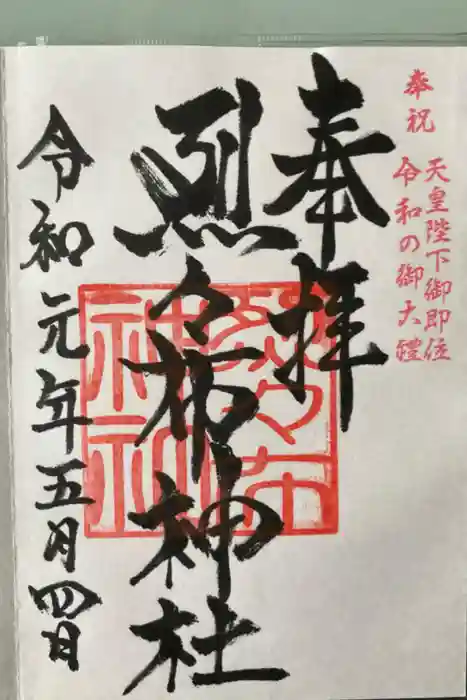 奉祝
天皇陛下御即位
令和の御大禮
奉拝
烈々布神社
令和元年五月四日
烈々布
神社